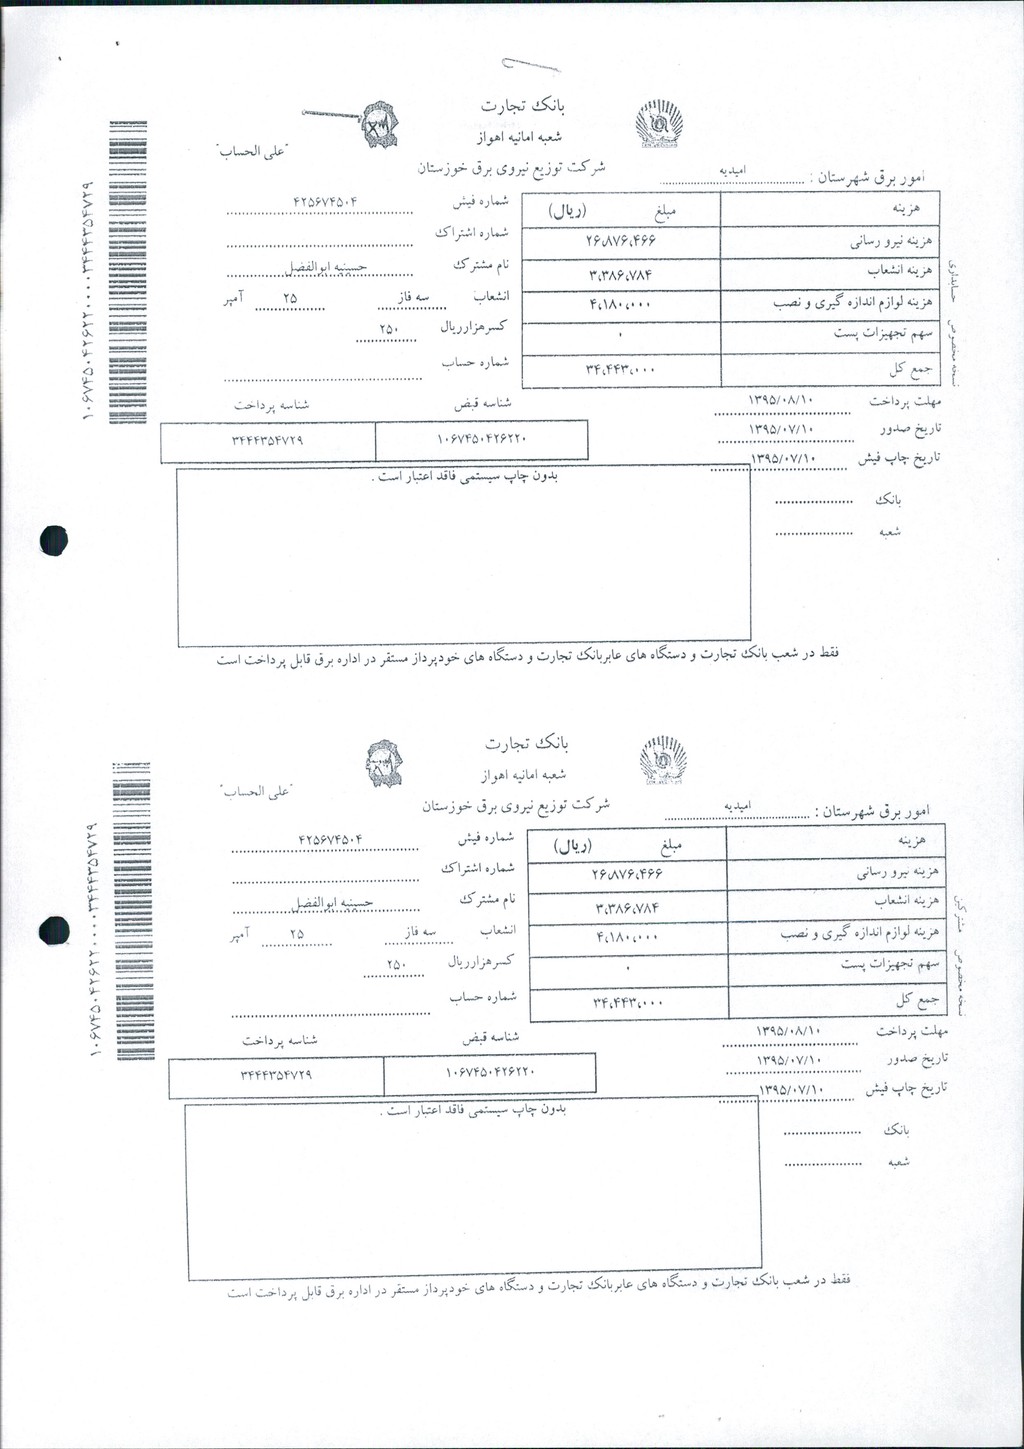 بانک تجارت
شعبه امانیه اهواز
"علی الحساب"
شرکت توزیع نیروی برق خوزستان
امور برق شهرستان : امیدیه
هزینه مبلغ (ریال)
هزینه نیرو رسانی ۲۶،۸۷۶،۴۶۶
هزینه انشعاب ۳،۳۸۶،۷۸۴
هزینه لوازم اندازه گیری و نصب ۴،۱۸۰،۰۰۰
سهم تجهیزات پست ۰
جمع کل ۳۴،۴۴۳،۰۰۰
شماره فیش ۴۲۵۶۷۴۵۰۴
شماره اشتراک
نام مشترک حسینیه ابوالفضل
انشعاب سه فاز ۲۵ آمپر
کسرهزارریال ۲۵۰
شماره حساب
مهلت پرداخت ۱۳۹۵/۰۸/۱۰
تاریخ صدور ۱۳۹۵/۰۷/۱۰
تاریخ چاپ فیش ۱۳۹۵/۰۷/۱۰
شناسه قبض شناسه پرداخت
۱۰۶۷۴۵۰۴۲۶۲۲۰ ۳۴۴۴۳۵۴۷۲۹
بدون چاپ سیستمی فاقد اعتبار است .
بانک
شعبه
فقط در شعب بانک تجارت و دستگاه های عابربانک تجارت و دستگاه های خودپرداز مستقر در اداره برق قابل پرداخت است
نسخه مخصوص حسابداری
۱۰۶۷۴۵۰۴۲۶۲۲۰۰۰۰۳۴۴۴۳۵۴۷۲۹
بانک تجارت
شعبه امانیه اهواز
"علی الحساب"
شرکت توزیع نیروی برق خوزستان
امور برق شهرستان : امیدیه
هزینه مبلغ (ریال)
هزینه نیرو رسانی ۲۶،۸۷۶،۴۶۶
هزینه انشعاب ۳،۳۸۶،۷۸۴
هزینه لوازم اندازه گیری و نصب ۴،۱۸۰،۰۰۰
سهم تجهیزات پست ۰
جمع کل ۳۴،۴۴۳،۰۰۰
شماره فیش ۴۲۵۶۷۴۵۰۴
شماره اشتراک
نام مشترک حسینیه ابوالفضل
انشعاب سه فاز ۲۵ آمپر
کسرهزارریال ۲۵۰
شماره حساب
مهلت پرداخت ۱۳۹۵/۰۸/۱۰
تاریخ صدور ۱۳۹۵/۰۷/۱۰
تاریخ چاپ فیش ۱۳۹۵/۰۷/۱۰
شناسه قبض شناسه پرداخت
۱۰۶۷۴۵۰۴۲۶۲۲۰ ۳۴۴۴۳۵۴۷۲۹
بدون چاپ سیستمی فاقد اعتبار است .
بانک
شعبه
فقط در شعب بانک تجارت و دستگاه های عابربانک تجارت و دستگاه های خودپرداز مستقر در اداره برق قابل پرداخت است
نسخه مخصوص مشترکین
۱۰۶۷۴۵۰۴۲۶۲۲۰۰۰۰۳۴۴۴۳۵۴۷۲۹